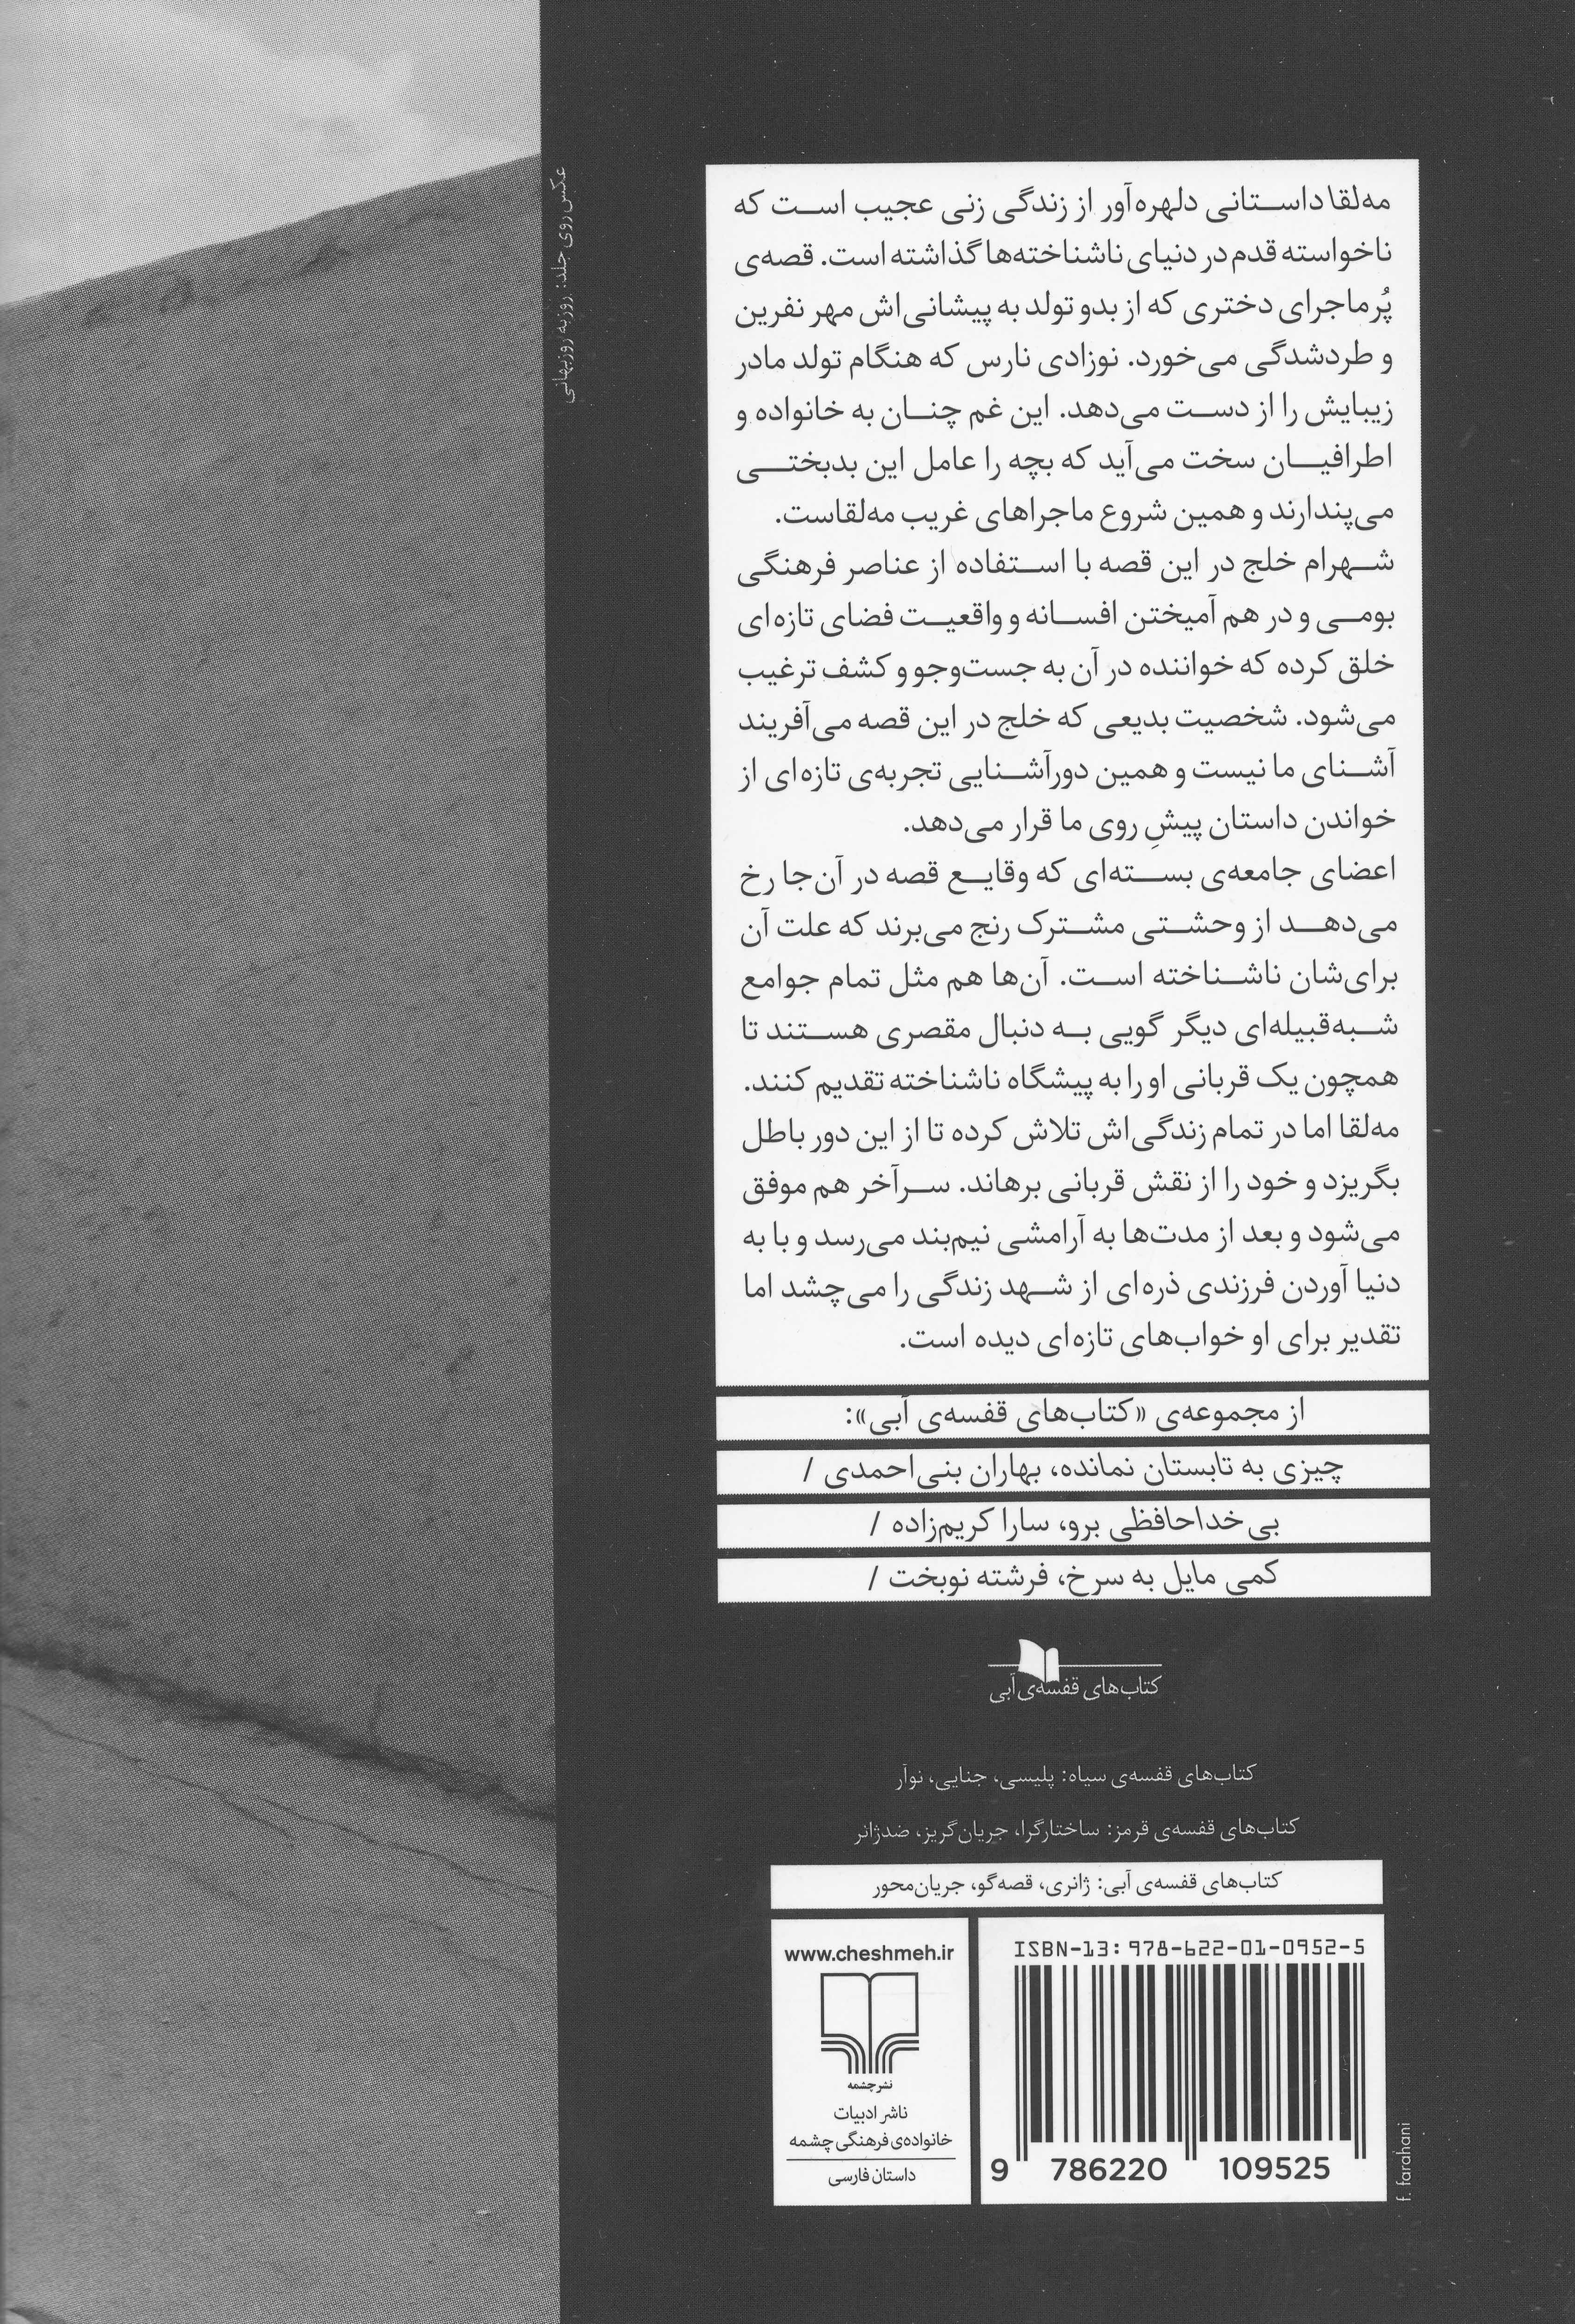 مه‌لقا داستانی دلهره‌آور از زندگی زنی عجیب است که
ناخواسته قدم در دنیای ناشناخته‌ها گذاشته است. قصه‌ی
پُرماجرای دختری که از بدو تولد به پیشانی‌اش مهر نفرین
و طردشدگی می‌خورد. نوزادی نارس که هنگام تولد مادر
زیبایش را از دست می‌دهد. این غم چنان به خانواده و
اطرافیان سخت می‌آید که بچه را عامل این بدبختی
می‌پندارند و همین شروع ماجراهای غریب مه‌لقاست.
شهرام خلج در این قصه با استفاده از عناصر فرهنگی
بومی و در هم آمیختن افسانه و واقعیت فضای تازه‌ای
خلق کرده که خواننده در آن به جست‌وجو و کشف ترغیب
می‌شود. شخصیت بدیعی که خلج در این قصه می‌آفریند
آشنای ما نیست و همین دورآشنایی تجربه‌ی تازه‌ای از
خواندن داستان پیشِ روی ما قرار می‌دهد.
اعضای جامعه‌ی بسته‌ای که وقایع قصه در آن‌جا رخ
می‌دهد از وحشتی مشترک رنج می‌برند که علت آن
برای‌شان ناشناخته است. آن‌ها هم مثل تمام جوامع
شبه‌قبیله‌ای دیگر گویی به دنبال مقصری هستند تا
همچون یک قربانی او را به پیشگاه ناشناخته تقدیم کنند.
مه‌لقا اما در تمام زندگی‌اش تلاش کرده تا از این دور باطل
بگریزد و خود را از نقش قربانی برهاند. سرآخر هم موفق
می‌شود و بعد از مدت‌ها به آرامشی نیم‌بند می‌رسد و با به
دنیا آوردن فرزندی ذره‌ای از شهد زندگی را می‌چشد اما
تقدیر برای او خواب‌های تازه‌ای دیده است.
از مجموعه‌ی «کتاب‌های قفسه‌ی آبی»:
چیزی به تابستان نمانده، بهاران بنی‌احمدی /
بی‌خداحافظی برو، سارا کریم‌زاده /
کمی مایل به سرخ، فرشته نوبخت /
کتاب‌های قفسه‌ی آبی
کتاب‌های قفسه‌ی سیاه: پلیسی، جنایی، نوآر
کتاب‌های قفسه‌ی قرمز: ساختارگرا، جریان‌گریز، ضدژانر
کتاب‌های قفسه‌ی آبی: ژانری، قصه‌گو، جریان‌محور
ISBN-13: 978-622-01-0952-5
9 786220 109525
www.cheshmeh.ir
نشرچشمه
ناشر ادبیات
خانواده‌ی فرهنگی چشمه
داستان فارسی
f. farahani
عکس روی جلد: روزبه روزبهانی